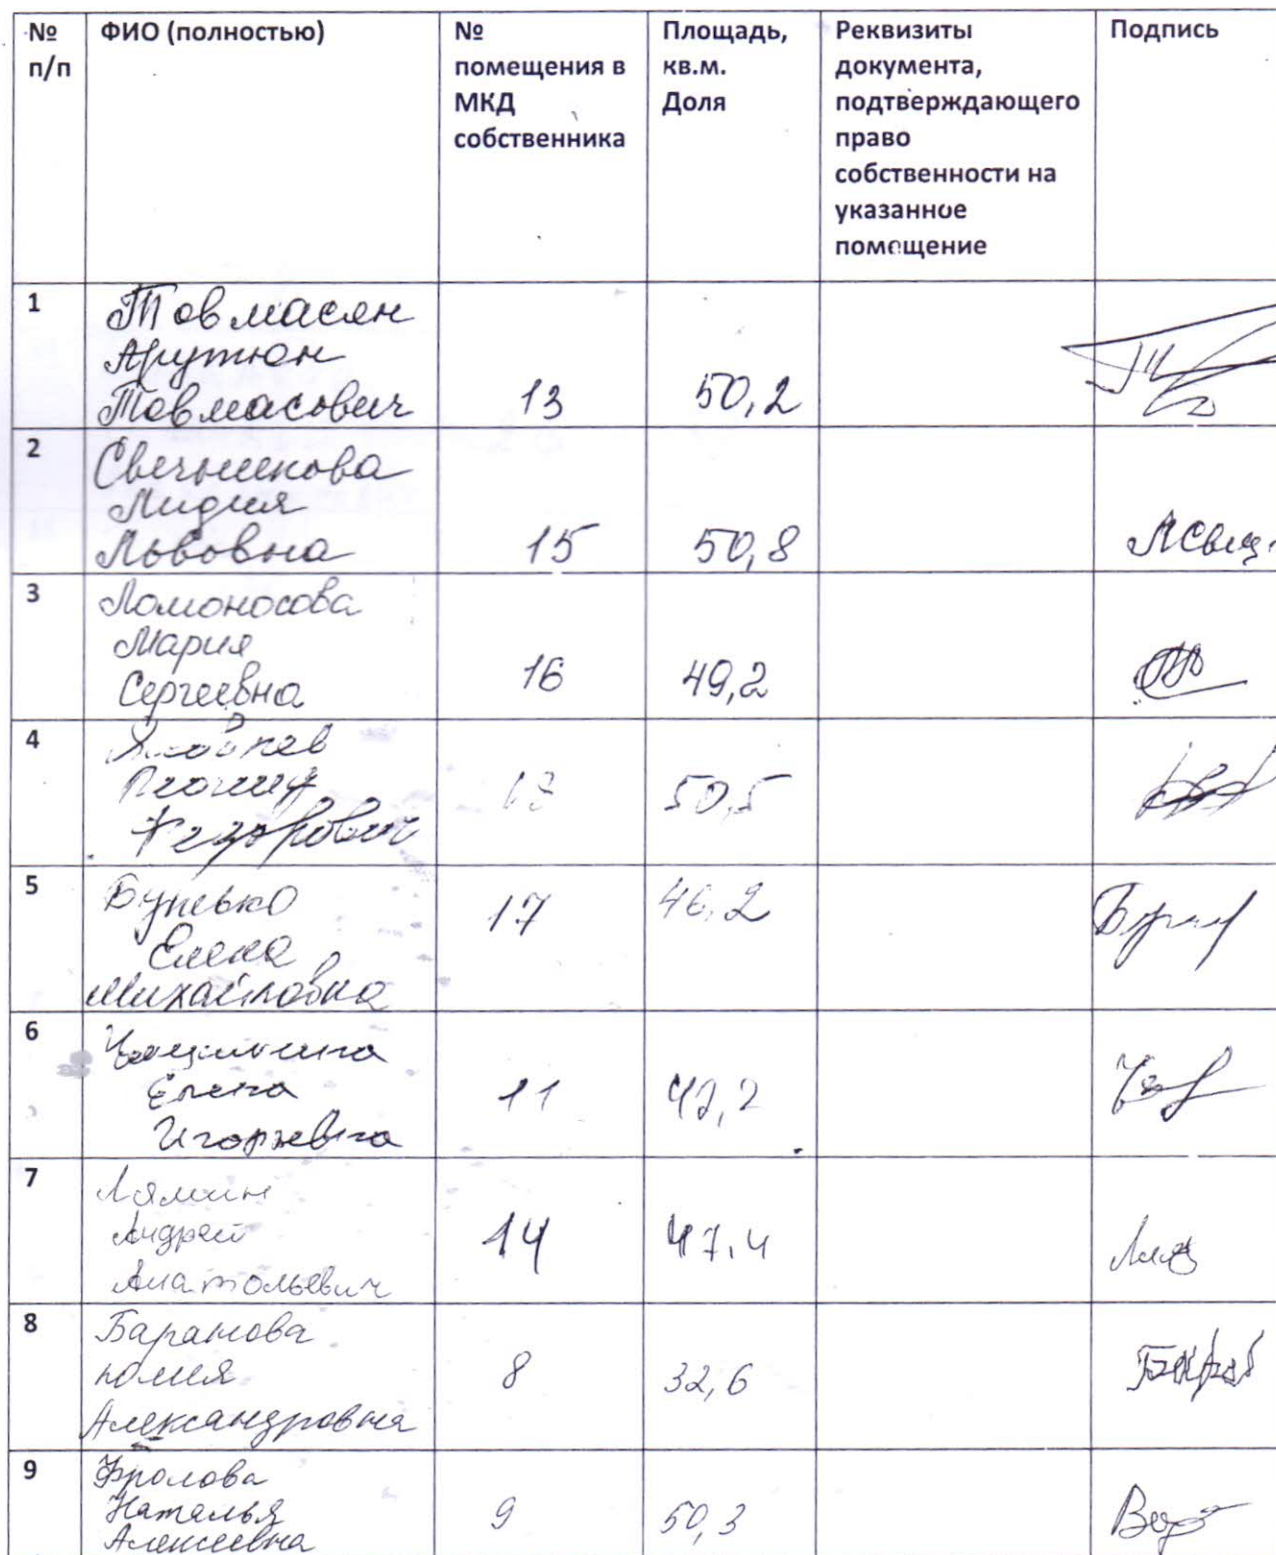 № п/п
ФИО (полностью)
№ помещения в МКД собственника
Площадь, кв.м. Доля
Реквизиты документа, подтверждающего право собственности на указанное помещение
Подпись
1
Товмасян
Арутюн
Товмасович
13
50,2
2
Свечникова
Лидия
Львовна
15
50,8
3
Ломоносова
Мария
Сергеевна
16
49,2
4
Леонид
Федорович
50,5
5
Бунько
Елена
Михайловна
17
46,2
6
Елена
Игорьевна
11
47,2
7
Лямин
Андрей
Анатольевич
14
47,4
8
Баранова
Юлия
Александровна
8
32,6
9
Фролова
Наталья
Алексеевна
9
50,3